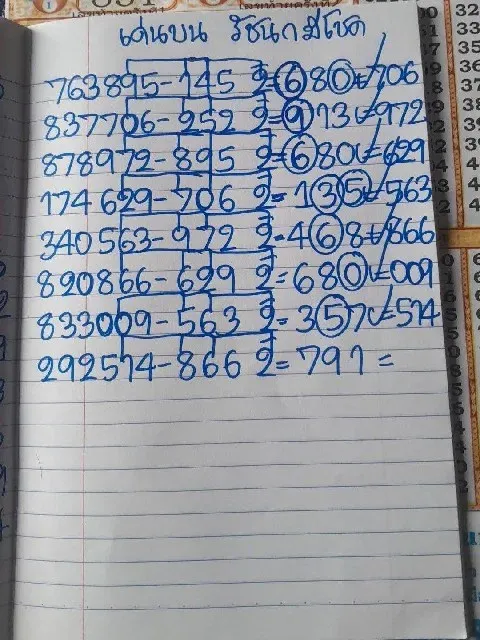 เด่นบน รัชนก มีโชค
763895-145 2=680=706
837706-252 2=913=972
878972-895 2=680=629
174629-706 2=135=563
340563-972 2=468=866
820866-629 2=680=009
833009-563 2=357=514
292514-866 2=791=